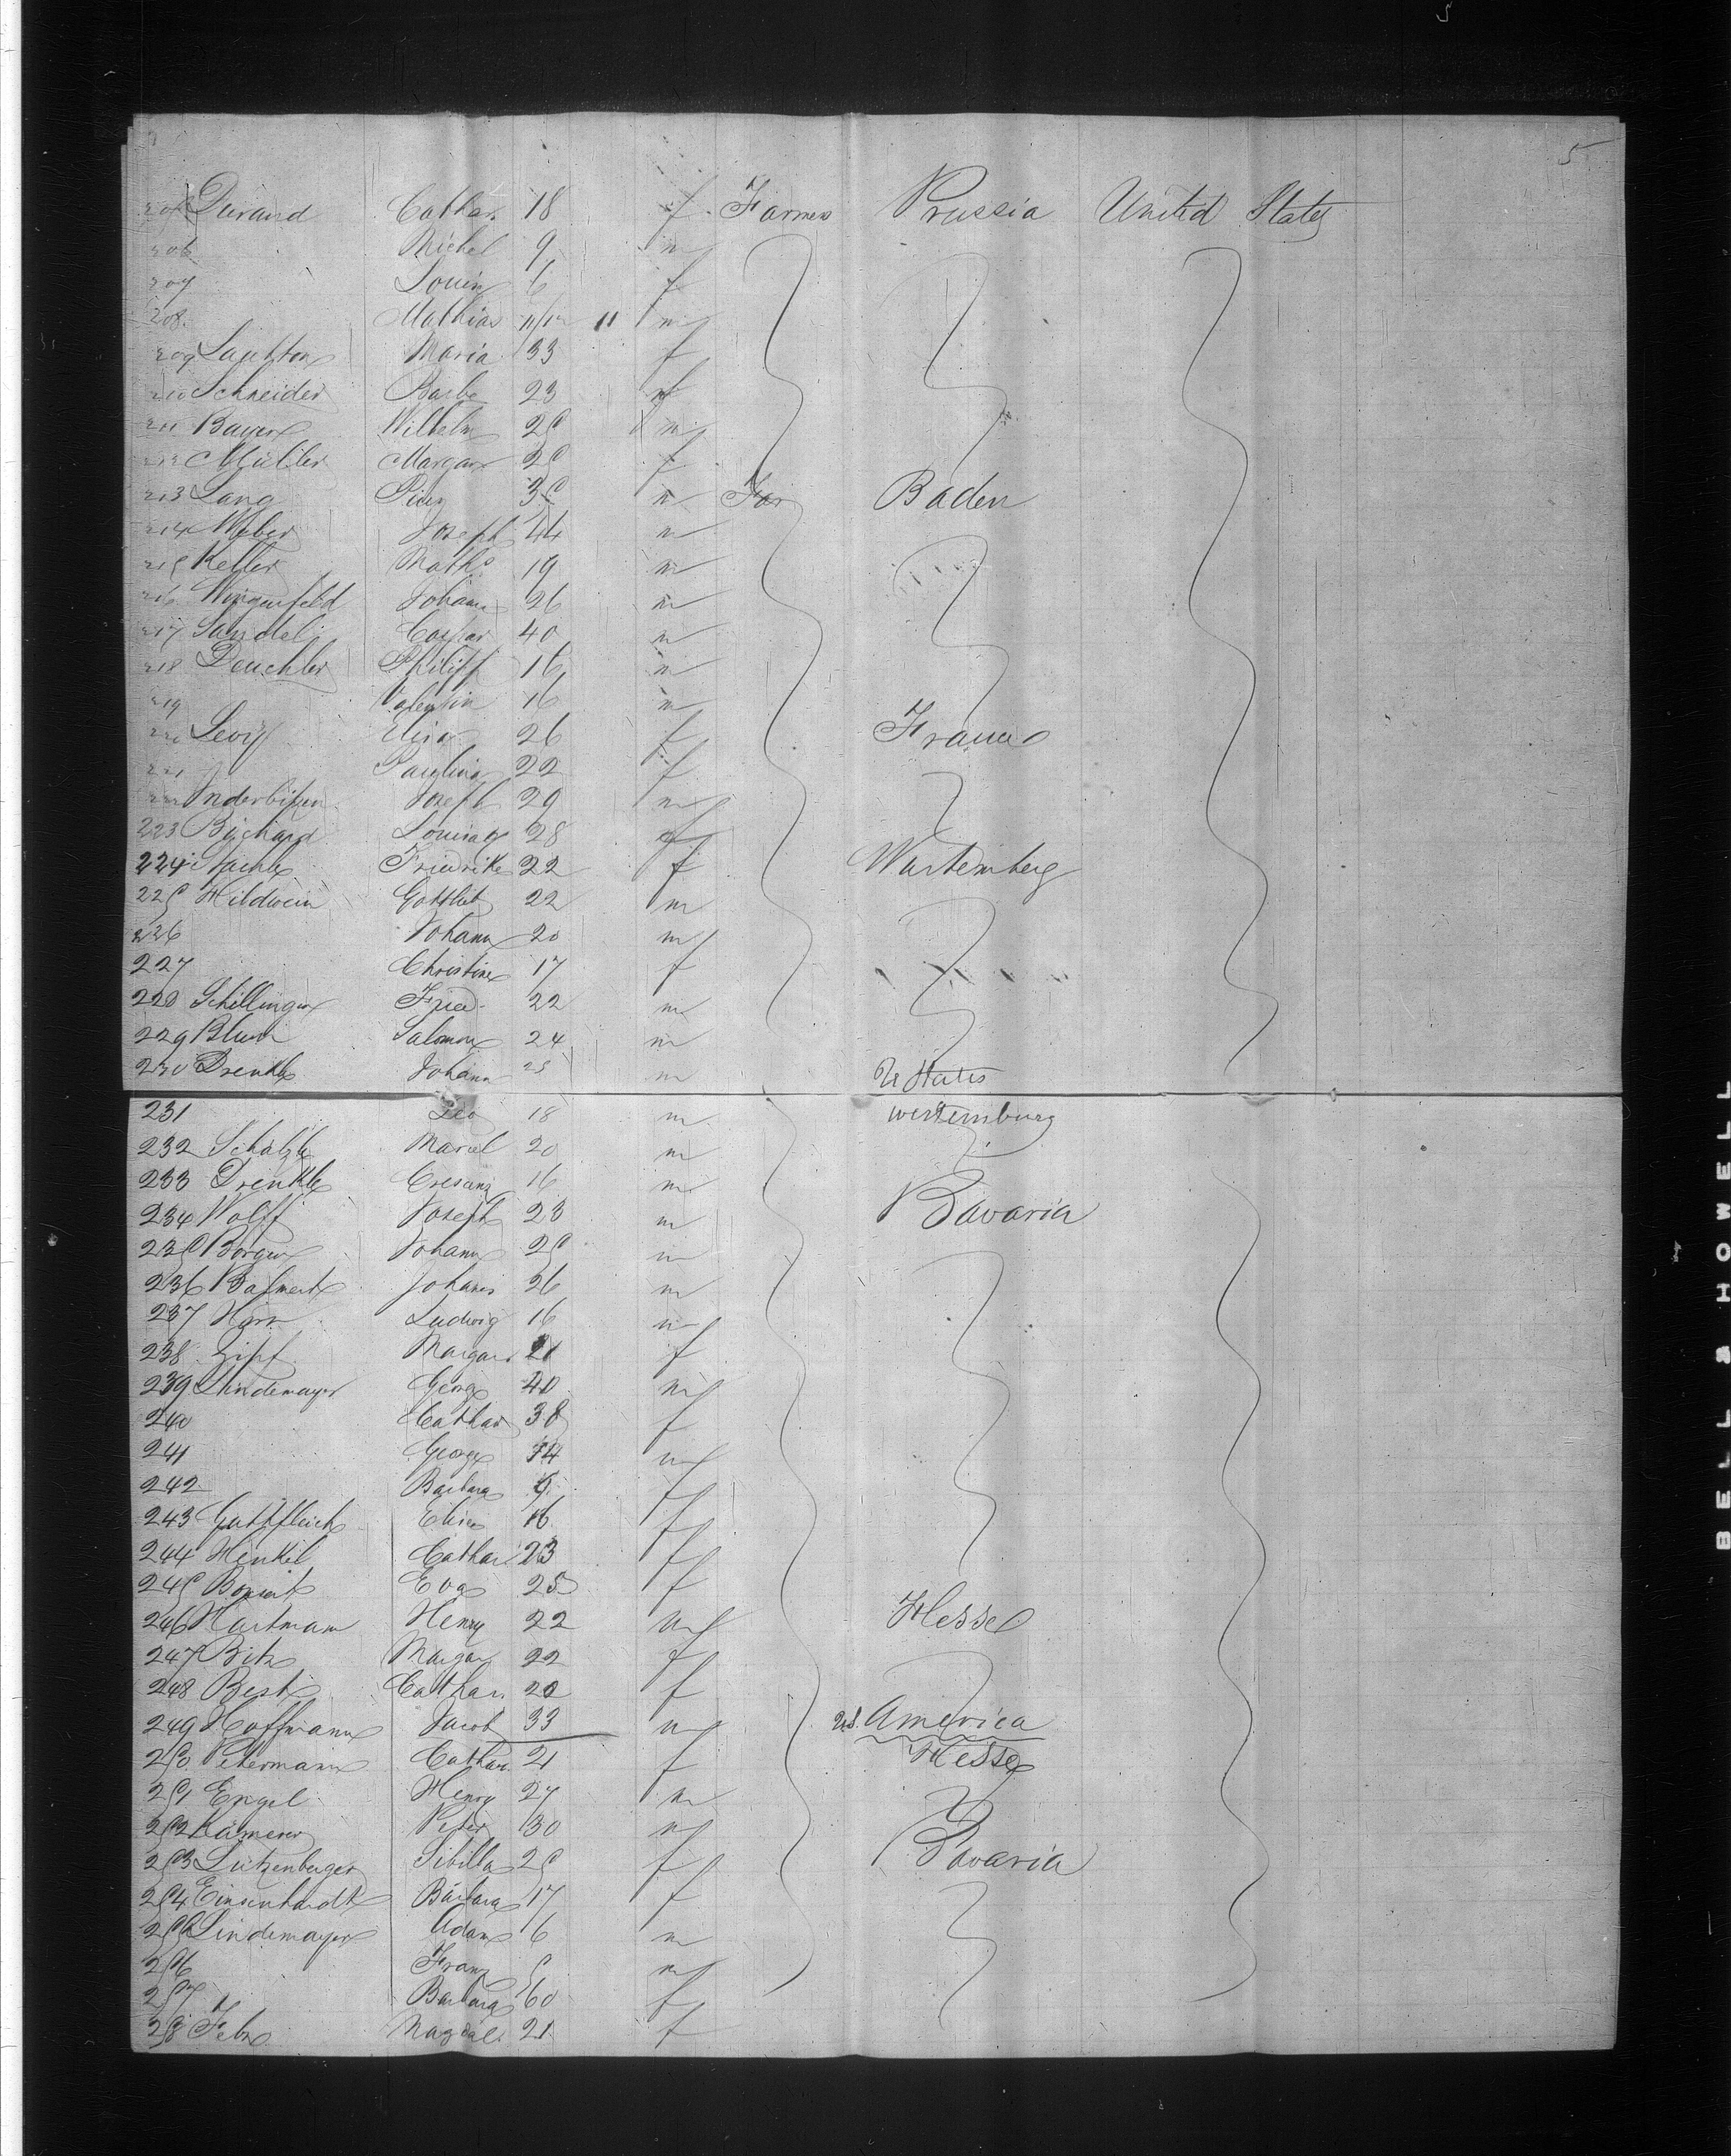 5
205 Durand Cathar. 18 f Farmer Prussia United States
206 Michel 9 m
207 Louise 6 f
208. Mathias 11/12 11 m
209 Maria 33 f
210 Schneider Barbe 23 f
211 Bayer Wilhelm 25 m
212 Müller Margar 25 f
213 Lang Pius 35 m Far Baden
214 Weber Joseph 44 m
215 Keller Maths 19 m
216 Wingenfeld Johann 26 m
217 Caspar 40 m
218 Deuchler Philipp 16 m
219 Valentin 16 m
220 Levy Elisa 26 f France
221 Paulina 22 f
222 Inderbitzen Joseph 29 m
223 Louisa 28 f
224 Friedrike 22 f Wurtemberg
225 Hildwein Gottlieb 22 m
226 Johann 20 m
227 Christine 17 f
228 Schillinger Fried. 22 m
229 Blum Salomon 24 m
230 Drenkle Johann 25 m U States
231 Leo 18 m wertemburg
232 Schatzle Marcel 20 m
233 Drenkle Cresanz 16 m
234 Wolff Joseph 23 m Bavaria
235 Borger Johann 25 m
236 Johanes 26 m
237 Horn Ludwig 16 m
238 Zipf Margar. 21 f
239 Lindemayer George 40 m
240 Cathar 38 f
241 George 14 m
242 Barbara 9 f
243 Gutfleisch Elisa 16 f
244 Henkel Cathar. 23 f
245 Eva 25 f
246 Hartmann Henry 22 m Hesse
247 Bitz Margar 22 f
248 Best Cathar. 20 f
249 Hoffmann Jacob 33 m U.S. America
250 Petermann Cathar. 21 f Hesse
251 Engel Henry 27 m
252 Kamerer Peter 30 m
253 Lutzenberger Sibilla 25 f Bavaria
254 Einsenhardt Barbara 17 f
255 Lindemayer Adam 6 m
256 Franz 5 m
257 Barbara 60 f
258 Magdal. 21 f
BELL & HOWELL